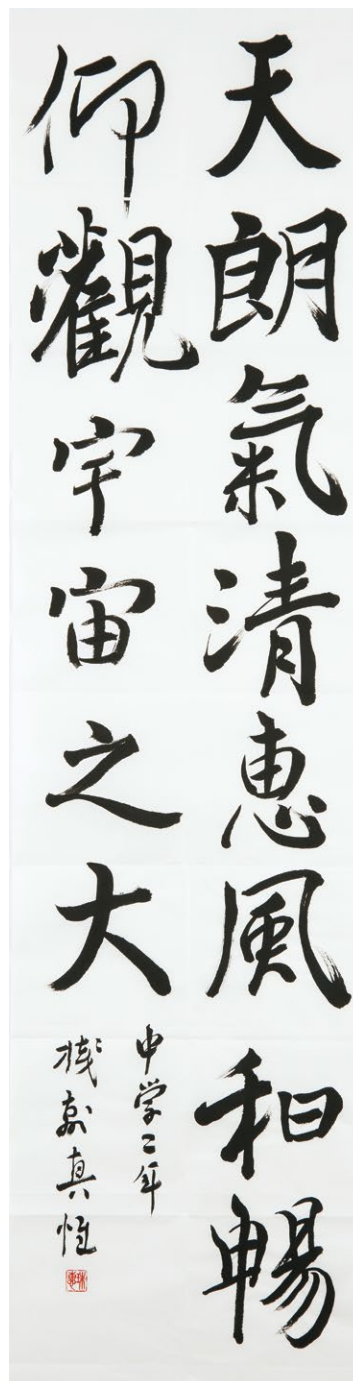 天朗氣清惠風和暢
仰觀宇宙之大
中学二年
真惟